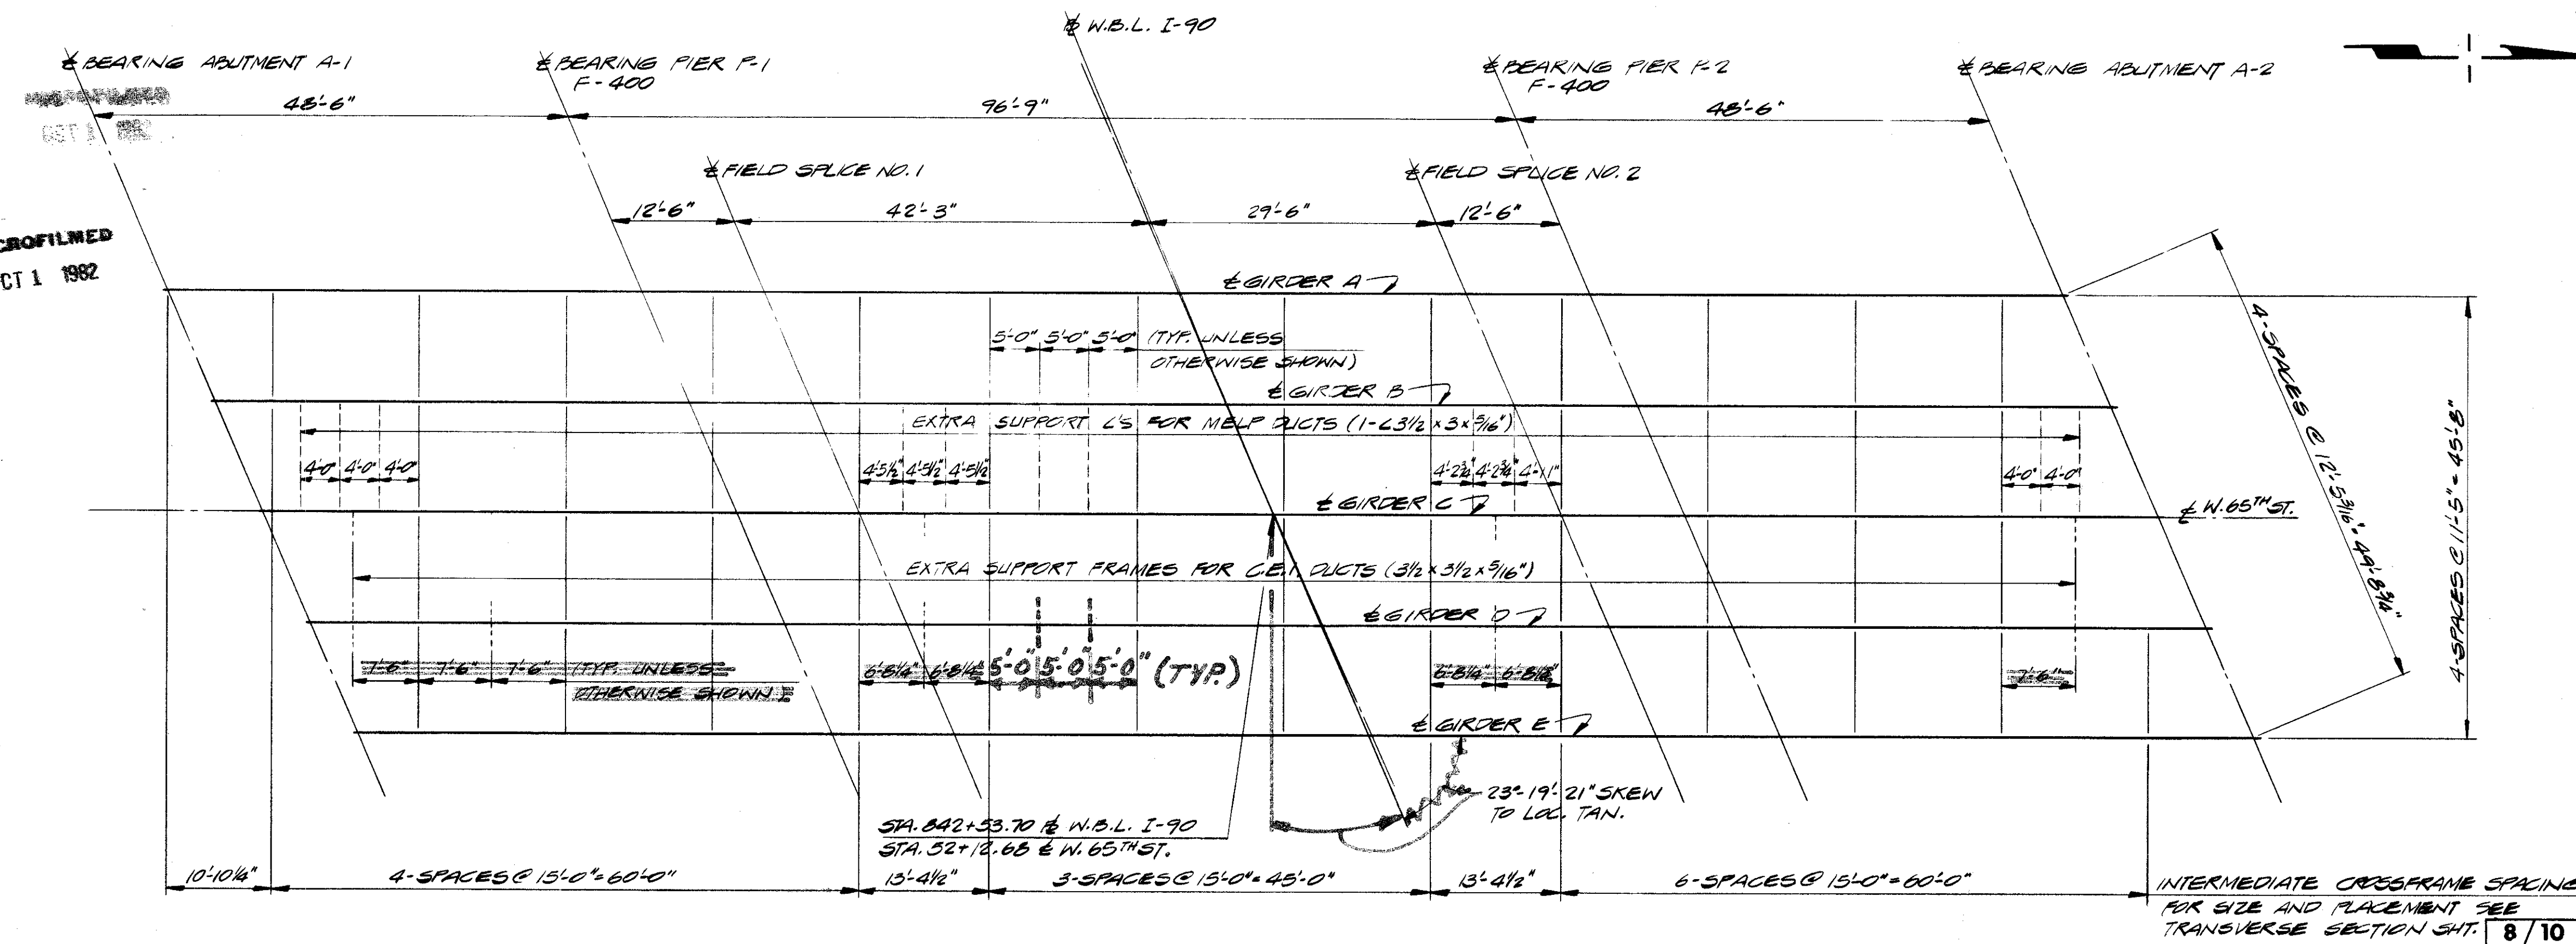 ℄ W.B.L. I-90
℄ BEARING ABUTMENT A-1
℄ BEARING PIER P-1
F-400
℄ BEARING PIER P-2
F-400
℄ BEARING ABUTMENT A-2
48'-6"
96'-9"
48'-6"
OCT 1
℄ FIELD SPLICE NO. 1
℄ FIELD SPLICE NO. 2
12'-6"
42'-3"
29'-6"
12'-6"
CROFILMED
CT 1 1982
℄ GIRDER A
5'-0" 5'-0" 5'-0" (TYP. UNLESS
OTHERWISE SHOWN)
℄ GIRDER B
EXTRA SUPPORT L'S FOR MELP DUCTS (1-L3 1/2 x 3 x 5/16")
4'-0" 4'-0" 4'-0"
4'-5 1/2" 4'-5 1/2" 4'-5 1/2"
4'-2 3/4" 4'-2 3/4" 4'-11"
4'-0" 4'-0"
℄ GIRDER C
℄ W. 65TH ST.
EXTRA SUPPORT FRAMES FOR C.E.I. DUCTS (3 1/2 x 3 1/2 x 5/16")
℄ GIRDER D
7'-6" 7'-6" 7'-6" (TYP. UNLESS
OTHERWISE SHOWN)
6'-8 1/4" 6'-8 1/4"
5'-0" 5'-0" 5'-0" (TYP.)
6'-8 1/4" 6'-8 1/4"
7'-6"
℄ GIRDER E
4-SPACES @ 12'-5 3/16" = 49'-8 3/4"
4-SPACES @ 11'-5" = 45'-8"
23°-19'-21" SKEW
TO LOC. TAN.
STA. 842+53.70 ℄ W.B.L. I-90
STA. 52+12.68 ℄ W. 65TH ST.
10'-10 1/4"
4-SPACES @ 15'-0" = 60'-0"
13'-4 1/2"
3-SPACES @ 15'-0" = 45'-0"
13'-4 1/2"
6-SPACES @ 15'-0" = 60'-0"
INTERMEDIATE CROSSFRAME SPACING
FOR SIZE AND PLACEMENT SEE
TRANSVERSE SECTION SHT.
8/10